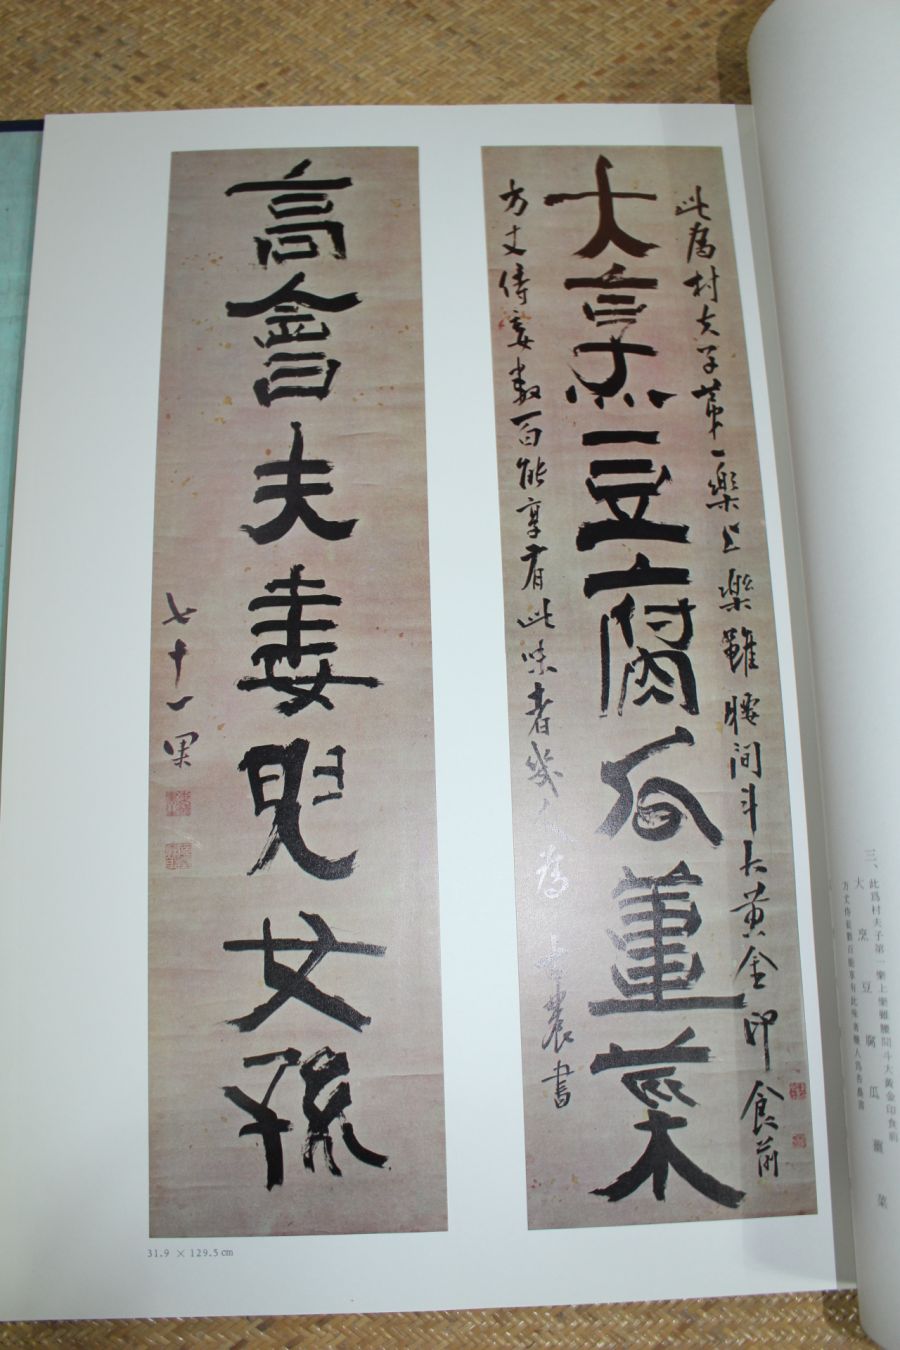 三、
此爲村夫子第一樂上樂雖腰間斗大黃金印食前
大烹豆腐瓜薑菜
方丈侍妾數百能享有此味者幾人爲杏農書
此爲村夫子第一樂上樂雖腰间斗大黄金印食前
大烹豆腐瓜薑菜
方丈侍妾數百能享有此味者幾人爲杏農書
高會夫妻兒女孫
七十一果
31.9 × 129.5cm